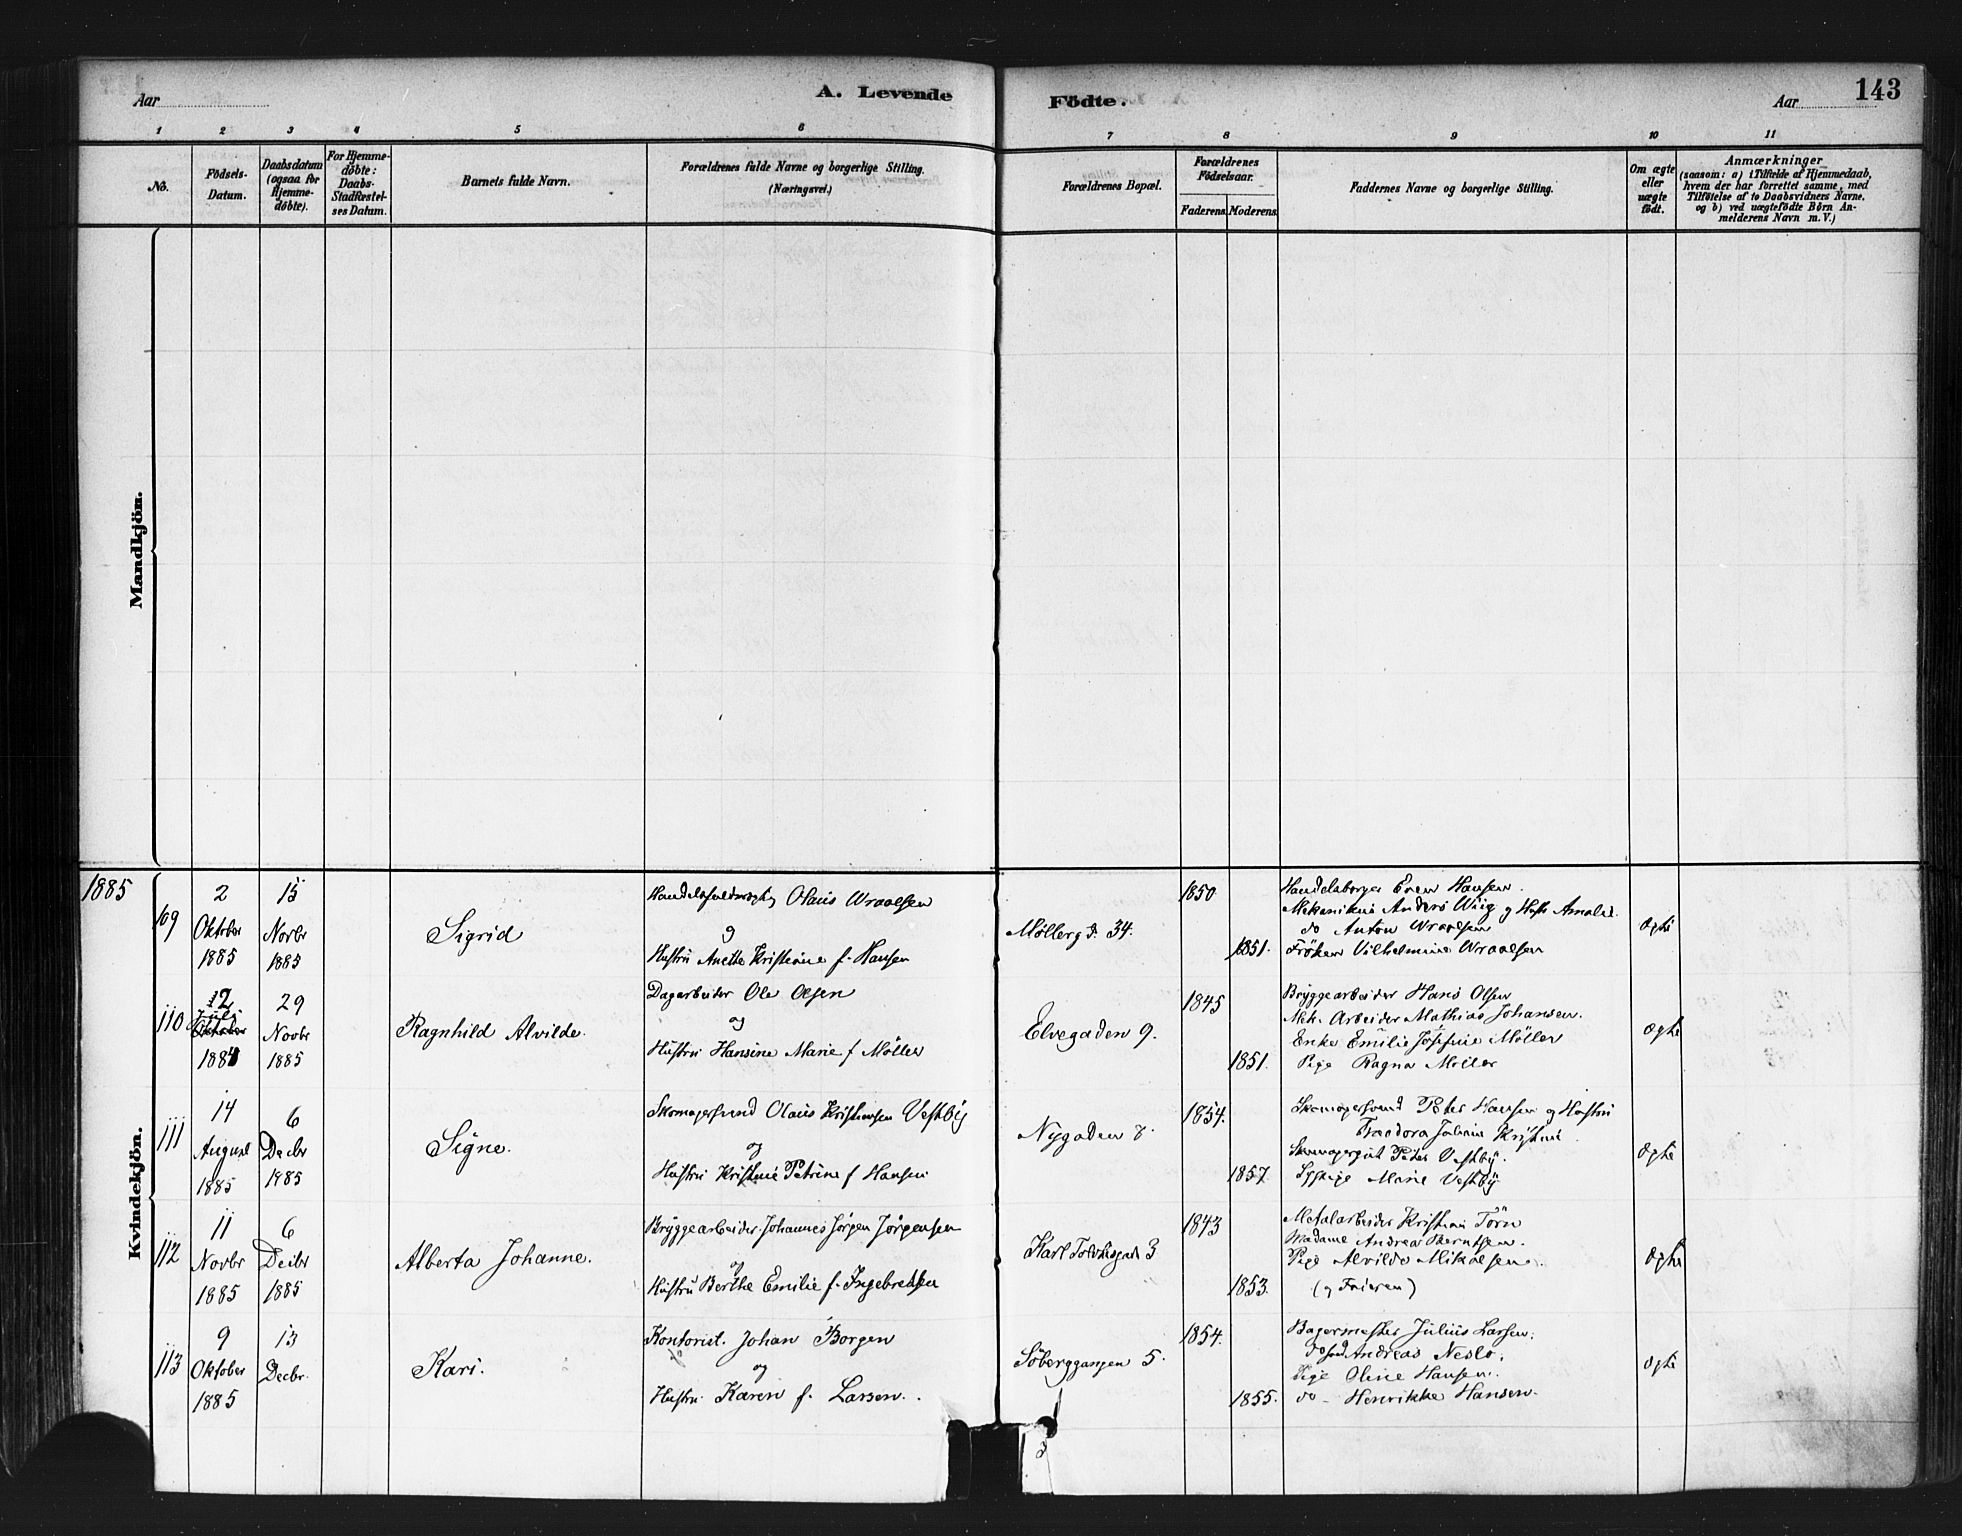 Aar
A. Levende
Födte.
Aar
143
1 2 3 4 5 6 7 8 9 10 11
No.
Födsels-
Datum.
Daabsdatum
(ogsaa for
Hjemme-
döbte).
For Hjemme-
döbte:
Daabs-
Stadfæstel-
ses Datum.
Barnets fulde Navn.
Forældrenes fulde Navne og borgerlige Stilling.
(Næringsvei.)
Forældrenes Bopæl.
Forældrenes
Födselsaar.
Faderens. Moderens.
Faddernes Navne og borgerlige Stilling.
Om ægte
eller
uægte
födt.
Anmærkninger
(saasom: a) i Tilfælde af Hjemmedaab,
hvem der har forrettet samme, med
Tilföielse af to Daabsvidners Navne,
og b) ved uægtefödte Börn An-
melderens Navn m. V.)
Mandkjön.
Kvindekjön.
1885
109
2
Oktober
1885
15
Novbr
1885
Sigrid
Olaus Wraalsen
og
Hustru Anette Kristiane f. Hansen
Møllerg d. 34.
1850
1851.
Handelsborger Even Hansen.
Mekanikus Anders Wiig og Hustr Amalie
do Anton Wraalsen
Fröken Vilhelmine Wraalsen
ægte
110
12
Juli
Oktober
1884
29
Novbr
1885
Ragnhild Alvilde.
Dagarbeider Ole Olsen
og
Hustru Hansine Marie f Møller
Elvegaden 9.
1845
1851.
Bryggearbeider Hans Olsen
Mek. Arbeider Mathias Johansen.
Enke Emilie Josefine Möller
Pige Ragna Möller
ægte
111
14
August
1885
6
Decbr
1885
Signe.
Skomagersvend Olaus Kristiansen Vestby
og
Hustru Kristine Petrine f Hansen
Nygaden 8.
1854.
1857.
Skomagersvend Peter Hansen og Hustru
Skomagergut Peter Vestby.
Marie Vestby
ægte
112
11
Novbr
1885
6
Decbr
1885
Alberta Johanne.
Bryggearbeider Johannes Jörgen Jörgensen
og
Hustru Berthe Emilie f. Ingebretsen
3
1843
1853.
Metalarbeider Kristian Törn
Madame Andrea Berntsen.
Pige Alvilde Mikalsen.
ægte
113
9
Oktober
1885
13
Decbr.
Kari.
Kontorist. Johan Borgen
og
Hustru Karen f. Larsen.
Söberggangen 5.
1854.
1855.
Bagermester Julius Larsen.
Andreas Neslo.
Pige Oline Hansen.
do - Henrikke Hansen.
ægte